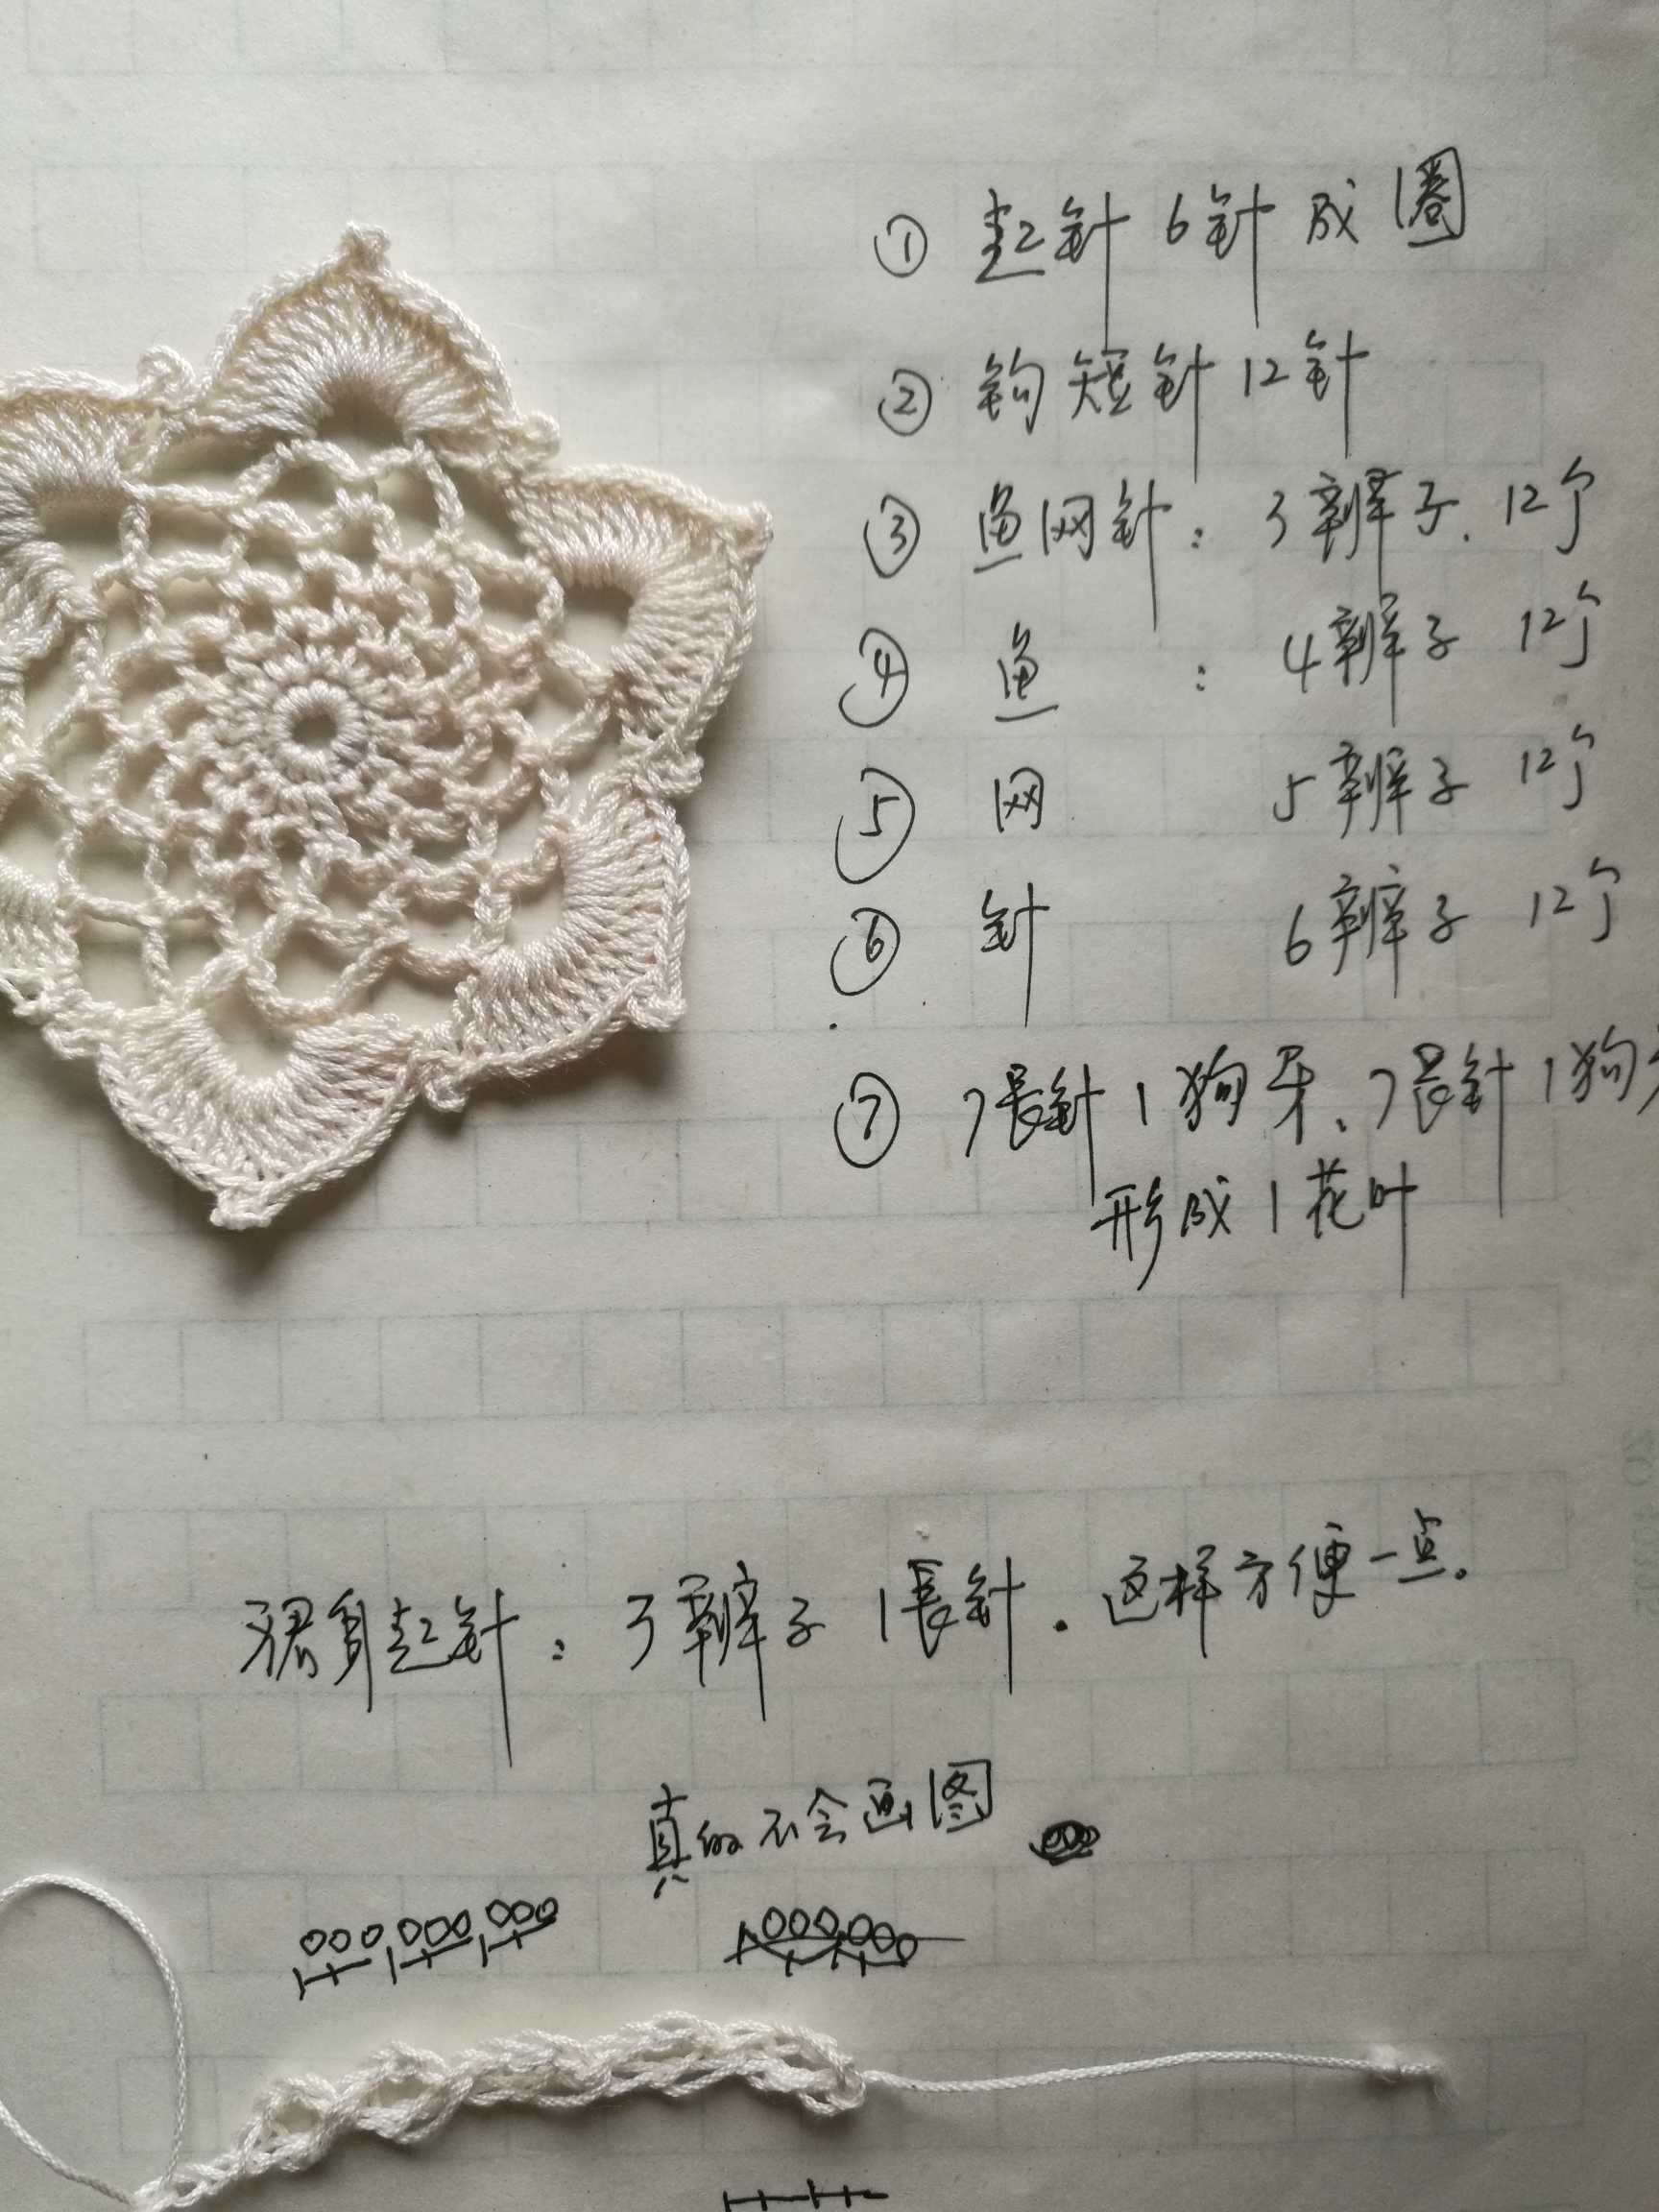 ① 起针 6针 成圈
② 钩短针 12针
③ 鱼网针：3辫子. 12个
④ 鱼 ：4辫子 12个
⑤ 网 5辫子 12个
⑥ 针 6辫子 12个
⑦ 7長針 1狗牙、7長針 1狗
形成1花叶
裙身起针：3辫子 1長針. 这样方便一点.
真的不会画图